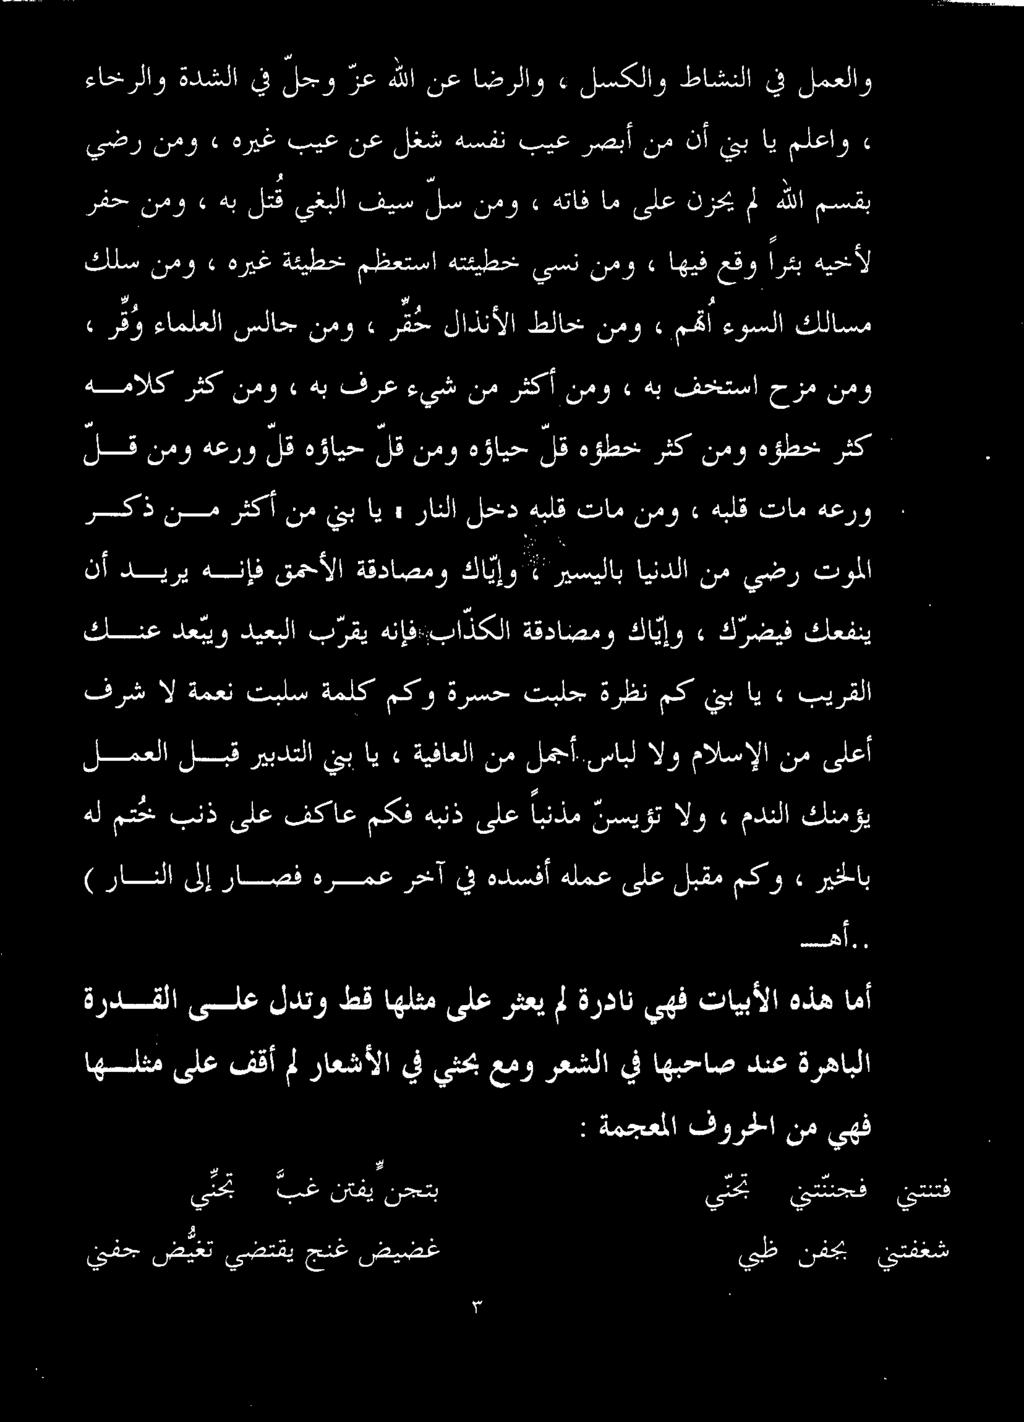 والعمل في النشاط والكسل ، والرضا عن الله عزّ وجلّ في الشدة والرخاء
، واعلم يا بني أن من أبصر عيب نفسه شغل عن عيب غيره ، ومن رضي
بقسم الله لم يحزن على ما فاته ، ومن سلّ سيف البغي قُتل به ، ومن حفر
لأخيه بئراً وقع فيها ، ومن نسي خطيئته استعظم خطيئة غيره ، ومن سلك
مسالك السوء أُتهم ، ومن خالط الأنذال حُقّر ، ومن جالس العلماء وُقّر ،
ومن مزح استخف به ، ومن أكثر من شيء عرف به ، ومن كثر كلامـــه
كثر خطؤه ومن كثر خطؤه قلّ حياؤه ومن قلّ حياؤه قلّ ورعه ومن قـــلّ
ورعه مات قلبه ، ومن مات قلبه دخل النار ، يا بني من أكثر مـــن ذكـــر
الموت رضي من الدنيا باليسير ، وإيّاك ومصادقة الأحمق فإنـــه يريـــد أن
ينفعك فيضرّك ، وإيّاك ومصادقة الكذّاب فإنه يقرّب البعيد ويبّعد عنـــك
القريب ، يا بني كم نظرة جلبت حسرة وكم كلمة سلبت نعمة لا شرف
أعلى من الإسلام ولا لباس أجمل من العافية ، يا بني التدبير قبـــل العمـــل
يؤمنك الندم ، ولا تؤيسنّ مذنباً على ذنبه فكم عاكف على ذنب خُتم له
بالخير ، وكم مقبل على عمله أفسده في آخر عمـــره فصـــار إلى النـــار (
..أهـــ
أما هذه الأبيات فهي نادرة لم يعثر على مثلها قط وتدل علـــى القـــدرة
الباهرة عند صاحبها في الشعر ومع بحثي في الأشعار لم أقف على مثلـــها
فهي من الحروف المعجمة :
فتنتني فجننّتني تجنّي بتجنٍّ يفتن غبَّ تجنِّي
شغفتني بجفن ظبي غضيض غنج يقتضي تغيُّض جفني
٣